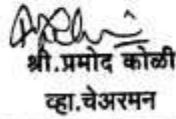 श्री.प्रमोद कोळी
व्हा.चेअरमन